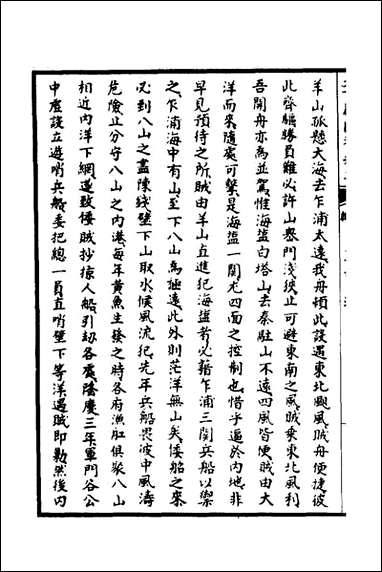 羊山孤懸大海去乍浦太遠我舟頓此設遇東北颶風賊舟便捷彼
此齊驅勝負難必許山嶴門淺狹止可避東南之風賊乘東北風利
吾開舟亦為並駕惟海鹽白塔山去秦駐山不遠四風皆便賊由大
洋而來隨處可擊是海鹽一關尤四面之控制也惜乎逼於內地非
早見預待之所賊由羊山直進犯海鹽者必藉乍浦三關兵船以禦
之乍浦海中有山至下八山為極遠此外則茫洋無山矣倭船之來
必到八山之盡陳錢壁下山取水候風流犯先年兵船畏彼中風濤
危險止分守八山之內港每年黃魚生發之時各府漁船俱聚八山
相近內洋下網遂致倭賊抄掠人船引劫各處隆慶三年軍門谷公
中虛設立遊哨兵船委把總一員直哨壁下等洋遇賊即勦然後內